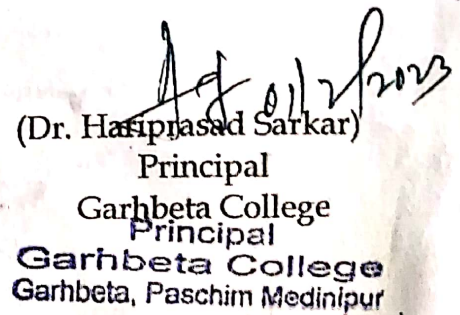 01/2/2023
(Dr. Hariprasad Sarkar)
Principal
Garhbeta College
Principal
Garhbeta College
Garhbeta, Paschim Medinipur